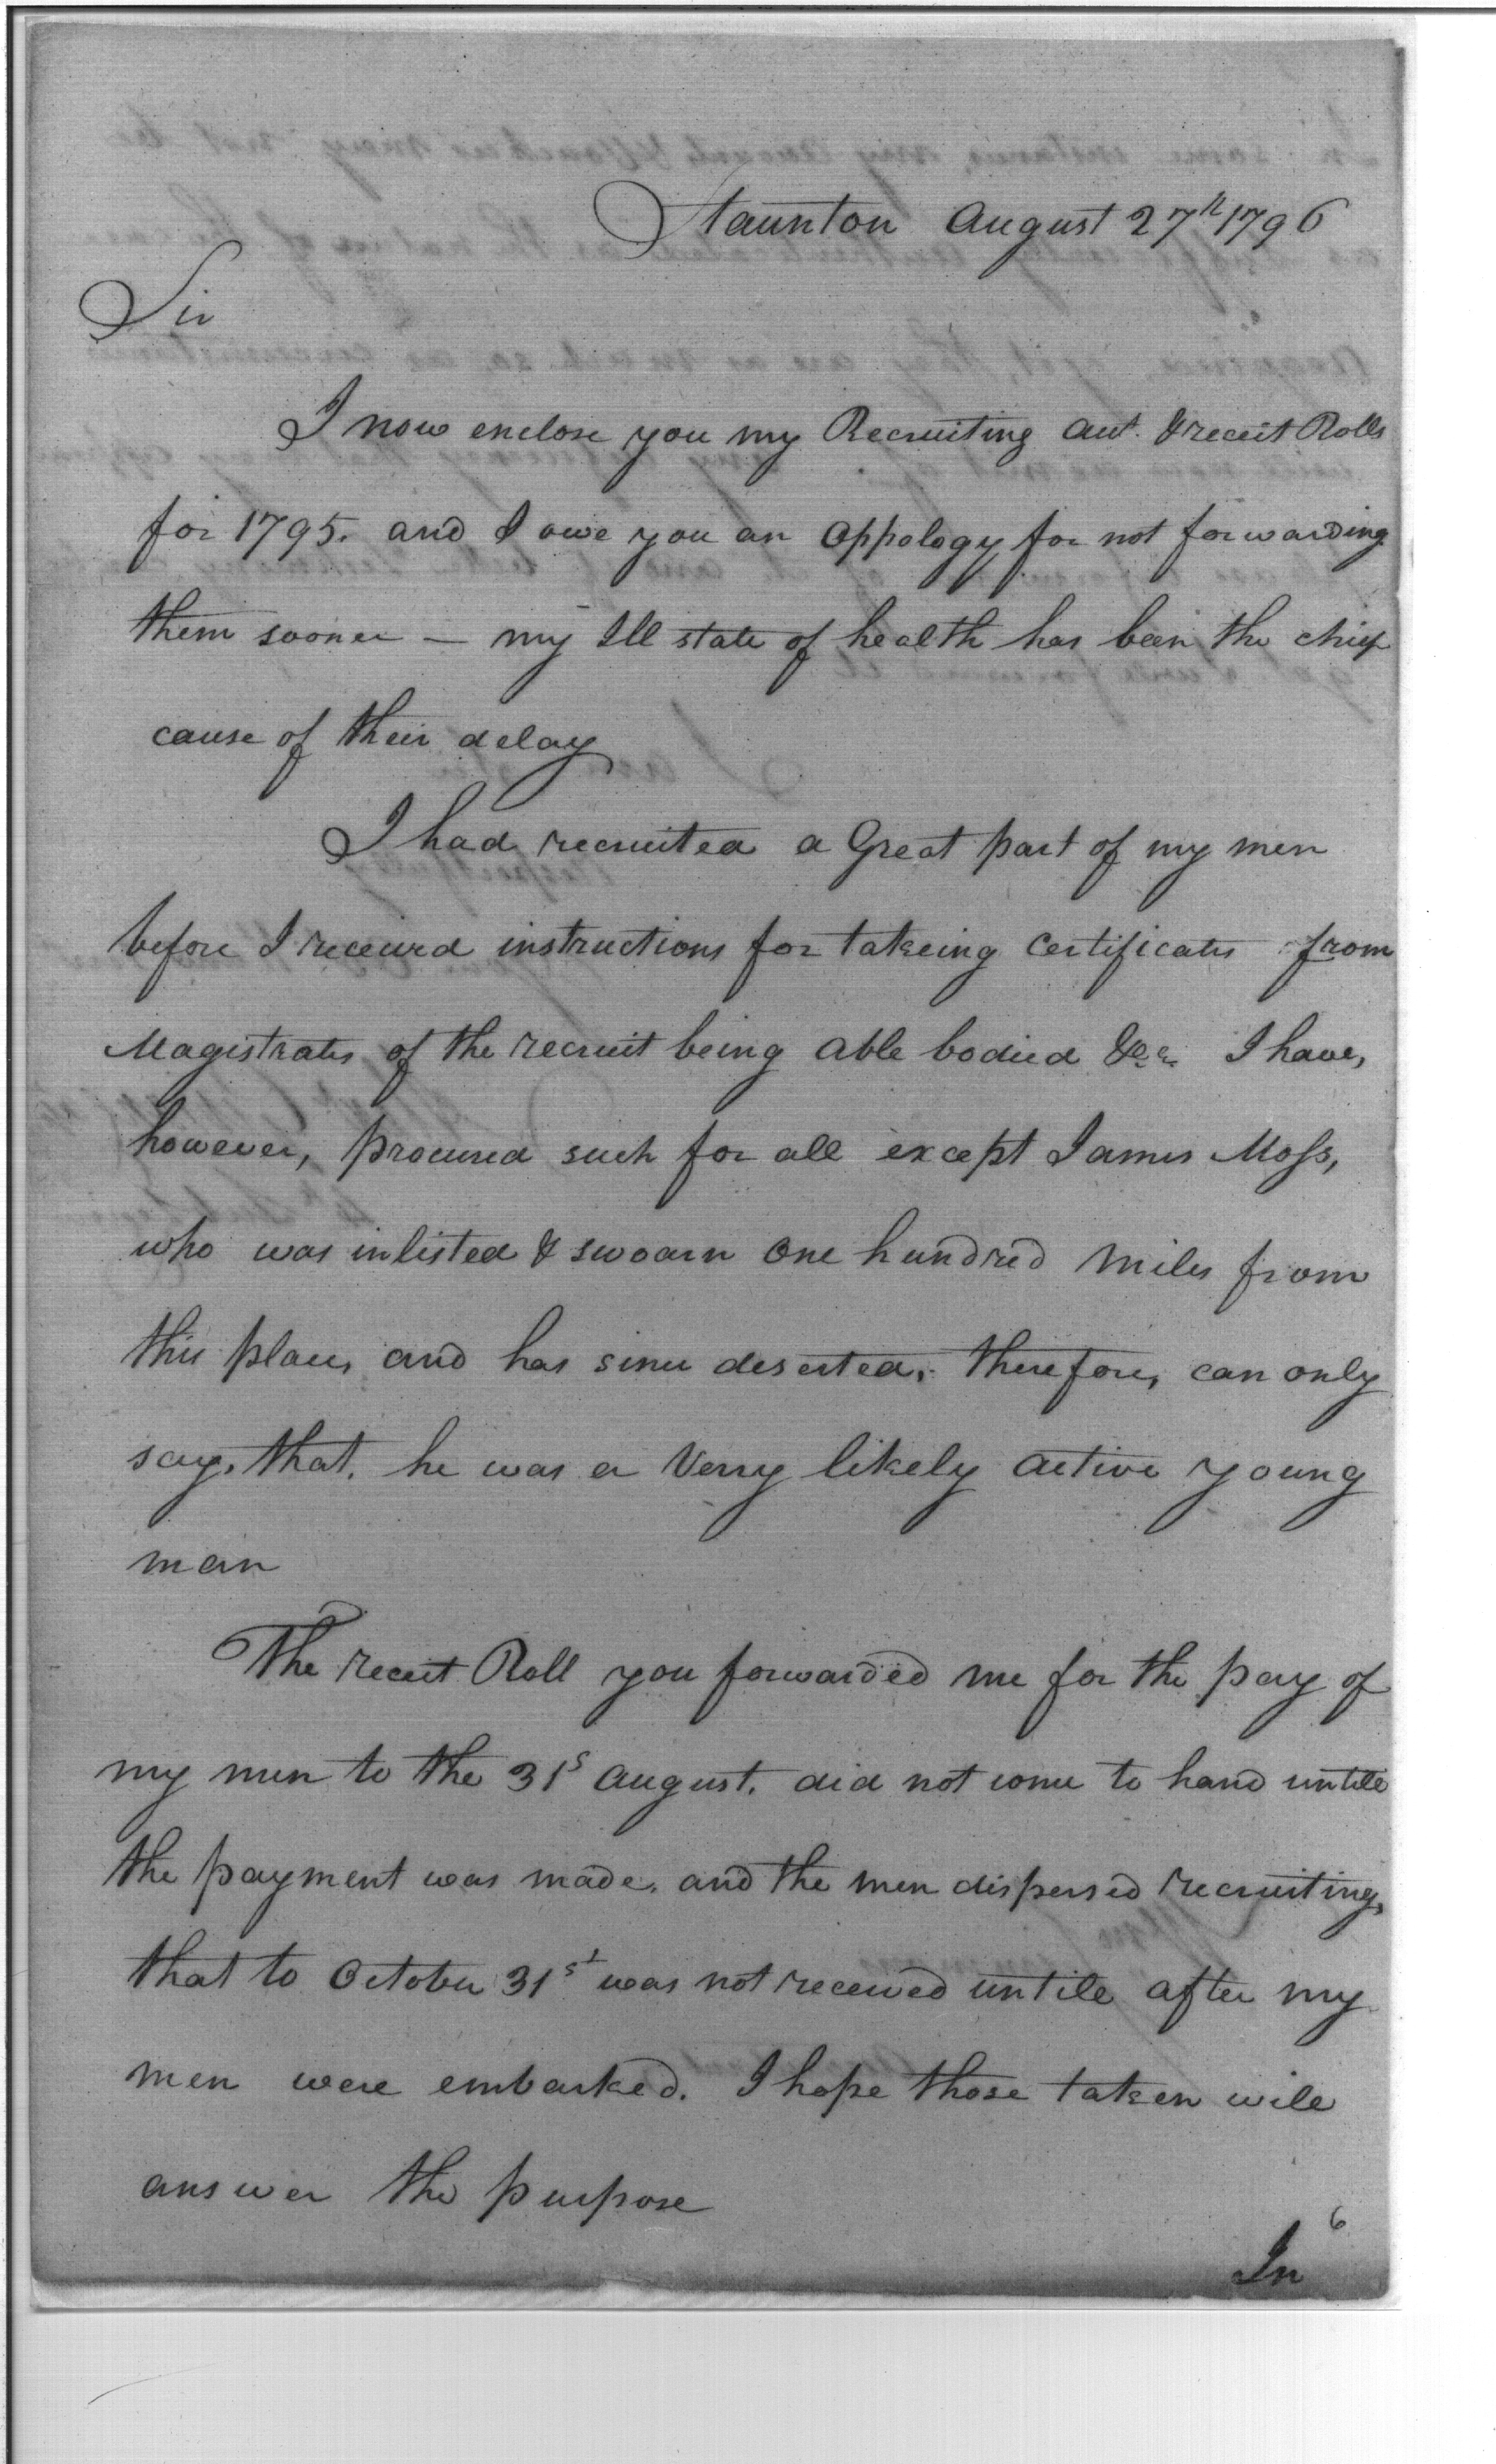 Staunton August 27th 1796
Sir
I now enclose you my Recruiting acct. & receit Rolls
for 1795. and I owe you an appology for not forwarding
them sooner — my Ill state of health has been the chief
cause of their delay
I had recruited a Great part of my men
before I received instructions for takeing Certificates from
Magistrates of the recruit being able bodied &c. I have,
however, procured such for all except James Moss,
who was inlisted & swoarn one hundred miles from
this place, and has since deserted, therefore, can only
say, that, he was a Verry likely active young
man
The receit Roll you forwarded me for the pay of
my men to the 31s August. did not come to hand untill
the payment was made. and the men dispersed recruiting,
that to October 31st was not received untill after my
men were embarked. I hope those taken will
answer the purpose
6
In